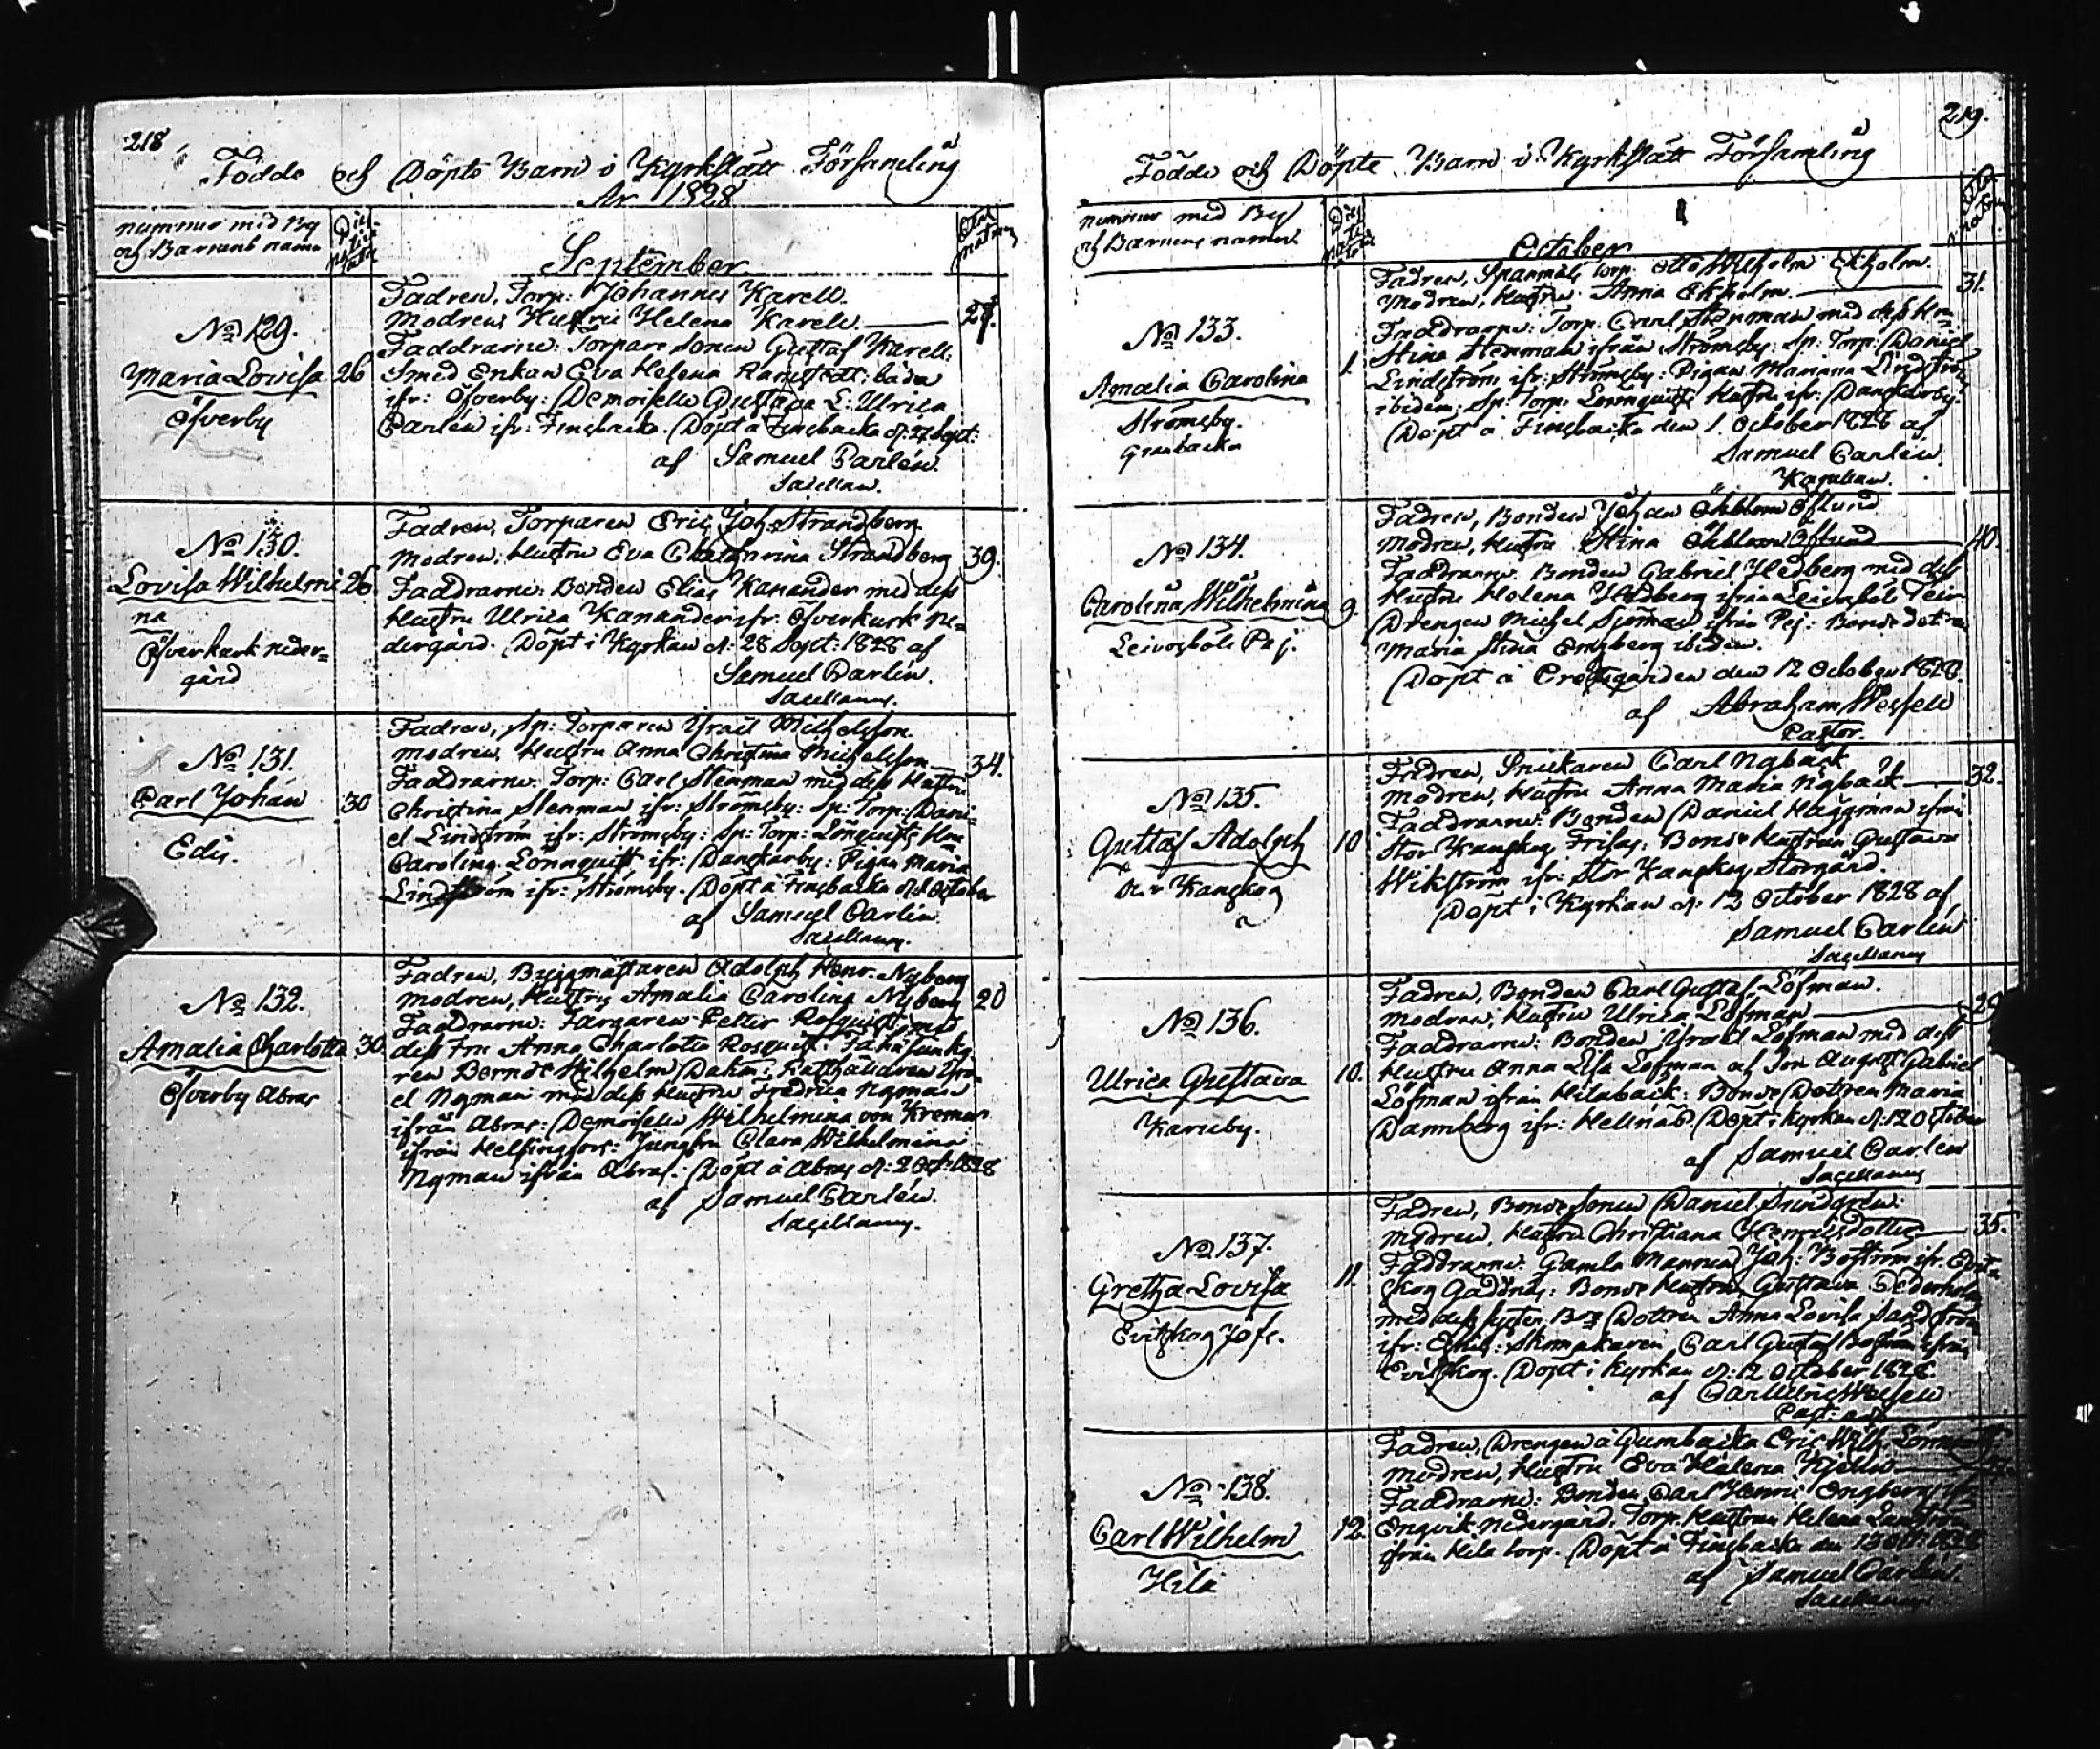 218
Födde och Döpte Barn i Kyrkslätt Församling
År 1828
nummer med By
och Barnens namn
Dies
nati
vita
tis
September
Ætas
matrum
No 129.
Maria Lovisa
Öfverby
26
Fadren, Torp: Johannes Karell.
Modren, Hustru Helena Karell.
27.
Faddrarne: Torpare Sonen Gustaf Karell:
Smed Enkan Eva Helena Ramstedt: båda
ifr: Öfverby: Demoiselle Gustava L: Ulrica
Carlén ifr: Finsbacka. Döpt å Finsbacka d: 27 Sept:
af Samuel Carlén.
Sacellan.
No 130.
Lovisa Wilhelmi
na
Öfverkurk neder=
gård
26
Fadren, Torparen Eric Joh: Strandberg
Modren: Hustru Eva Chatharina Strandberg
39.
Faddrarne: Bonden Elias Kanander med dess
Hustru Ulrica Kanander ifr: Öfverkurk ne=
dergård. Döpt i Kyrkan d: 28 Sept: 1828 af
Samuel Carlén.
Sacellanus.
No 131.
Carl Johan
Edis.
30
Fadren, Sp: Torparen Israel Michelsson.
Modren, Hustru Anna Christina Michelsson
34.
Faddrarne: Torp: Carl Stenman med dess Hustru
Christina Stenman ifr: Strömsby: Sp: Torp: Dani=
el Lindström ifr: Strömsby: Sp: Torp: Lönquists
Carolina Lönnquist ifr: Danskarby: Pigan Maria
Lindström ifr: Strömsby. Döpt å Finsbacka d: 1 October
af Samuel Carlén.
Sacellanus.
No 132.
Amalia Charlotta
Öfverby Abras
30
Fadren, Byggmästaren Adolph Henr: Nyberg
Modren, Hustru Amalia Carolina Nyberg
20
Faddrarne: Färgaren Petter Rosquist med
dess Fru Anna Charlotta Rosquist
ren Berndt Wilhelm Dahm: Isra
el Nyman med dess Hustru Fredrica Nyman
ifrån Abras: Demoiselle Wilhelmina von Kremer
ifrån Helsingfors: Jungfru Clara Wilhelmina
Nyman ifrån Abras: Döpt å Abras d: 2 Oct: 1828
af Samuel Carlén.
Sacellanus.
219.
Födde och Döpte Barn i Kyrkslätt Församling
nummer med By
och Barnens namn
October
No 133.
Amalia Carolina
Strömsby.
Granbacka
1.
Fadren, Spanmåls torp: Otto Wilhelm Ekholm.
Modren, Hustru Anna Ekholm.
31.
Faddrarne: Torp: Carl Stenman med dess Hu=
Stina Stenman ifrån Strömsby: Sp: Torp: Daniel
Lindström ifr: Strömsby: Pigan Mariana Lindström
ibidem: Sp: Torp: Lönnquists Hustru ifr: Danskarby.
Döpt å Finsbacka den 1. October 1828 af
Samuel Carlén.
Kapellan.
No 134.
Carolina Wilhelmina
Leivosböle Pej.
9.
Fadren, Bonden Johan Öflund
Modren, Hustru Stina Öflund
40.
Faddrarne: Bonden Gabriel Hedberg med dess
Hustru Helena Hedberg ifrån Leivosböle Teir
Drengen Michel Sjöman ifrån Pej: Bonde dottren
Maria Stina Engberg ibidem.
Döpt å Prestgården den 12 October 1828.
af Abraham Wesfeld
Pastor.
No 135.
Gustaf Adolph
Kangskog
10
Fadren, Snickaren Carl Nyback
Modren, Hustru Anna Maria Nyback
32.
Faddrarne: Bonden Daniel Häggman ifrån
Stor Kangskog Frisas: Bonde Hustrun Gustava
Wikström ifr: Stor Kangskog Storgård.
Döpt i Kyrkan d: 12 October 1828 af
Samuel Carlén
Sacellanus
No 136.
Ulrica Gustava
Karuby.
10.
Fadren, Bonden Carl Gustaf Löfman.
Modren, Hustru Ulrica Löfman
Faddrarne: Bonden Israel Löfman med dess
Hustru Anna Lisa Löfman och Son August Gabriel
Löfman ifrån Hilaback: Bonde Dottren Maria
Dannberg ifr: Döpt i Kyrkan d: 12 October
af Samuel Carlén
Sacellanus
No 137.
Gretha Lovisa
Evitskog Jofs.
11.
Fadren, Bonde Sonen Daniel Sundgren.
Modren, Hustru Christiana Henricsdotter
35.
Faddrarne: Gamla Mannen Joh: Boström ifr: Evits=
kog Bonde Hustrun Gustava Cederholm
med dess Syster, Bon Dottren Anna Lovisa Sandström
ifr: Skomakaren Carl Gustaf ifrån
Evitskog. Döpt i Kyrkan d: 12 October 1828.
af Carl Ulric Wesfeld
Past: adj
No 138.
Carl Wilhelm
Hila
12.
Fadren, Drengen å Gumbacka Eric Wilh:
Modren, Hustru Eva Helena
Faddrarne: Bonden Carl Henric Engberg ifr:
Engvik Nedergård. Torp: Hustrun Helena
ifrån Hila torp. Döpt å Finsbacka den 13 Oct: 1828
af Samuel Carlén.
Sacellanus